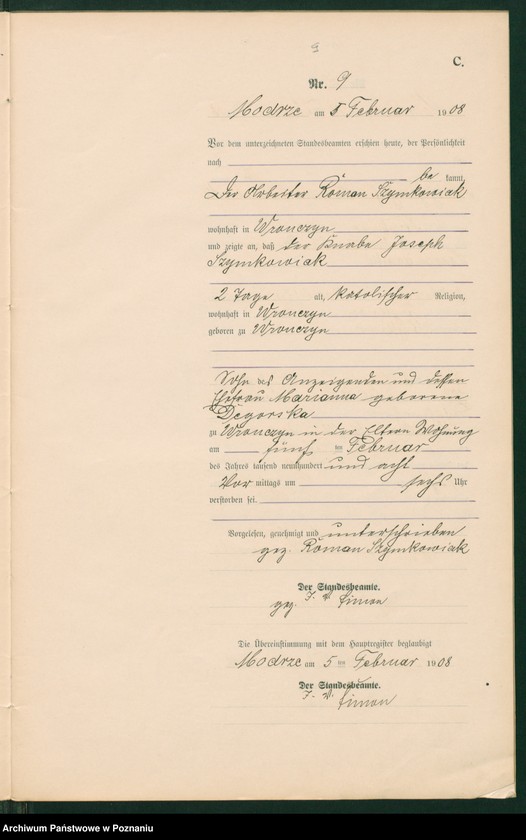 9
C.
Nr. 9
Modrze am 5 Februar 1908
Vor dem unterzeichneten Standesbeamten erschien heute, der Persönlichkeit
nach
be kannt,
Der Arbeiter Roman Szymkowiak
wohnhaft in Wronczyn
und zeigte an, daß der Knabe Joseph
Szymkowiak
2 Tage alt, katolischer Religion,
wohnhaft in Wronczyn
geboren zu Wronczyn
Sohn des Anzeigenden und dessen
Ehefrau Marianna geborene
Degorska
zu Wronczyn in der Eltern Wohnung
am fünf ten Februar
des Jahres tausend neunhundert und acht
Vor mittags um sechs Uhr
verstorben sei.
Vorgelesen, genehmigt und unterschrieben
gez. Roman Szymkowiak
Der Standesbeamte.
gez. J. V. Simon
Die Übereinstimmung mit dem Hauptregister beglaubigt
Modrze am 5 ten Februar 1908
Der Standesbeamte.
J. V. Simon
Archiwum Państwowe w Poznaniu